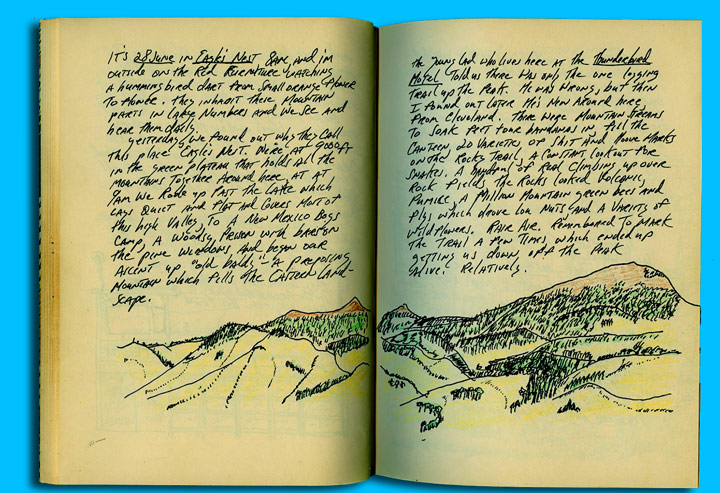 It's 28 June in Eagle's Nest 8AM, and I'm
outside on the Red Furniture watching
a hummingbird dart from small orange flower
to flower. They inhabit these mountain
parts in large numbers and we see and
hear them closely.
Yesterday, we found out why they call
this place Eagle's Nest. We're at 9000 ft
in the green plateau that holds all the
mountains together around here, at
9AM we rode up past the lake which
lays quiet and flat and covers most of
this high valley, to a New Mexico Boys
Camp, a woodsy, prison with bars on
the pine windows, and began our
ascent up "old baldy" - a
mountain which fills the eastern land-
scape.
the young lad who lives here at the Thunderbird
Motel told us there was only the one logging
trail up the peak. He was wrong, but then
I found out later he's new around here,
from Cleveland. There were mountain streams
to soak feet four bandanas in fill the
canteen, 20 varieties of shit and hoove marks
on the rocks trail, a constant lookout for
snakes. A of real climbing up over
rock fields the rocks looked volcanic,
pumice, a million mountain green bees and
flys which drove Lou nuts and a variety of
wild flowers. Rare air. Remembered to mark
the trail a few times, which ended up
getting us down, off the peak
alive. Relatively.